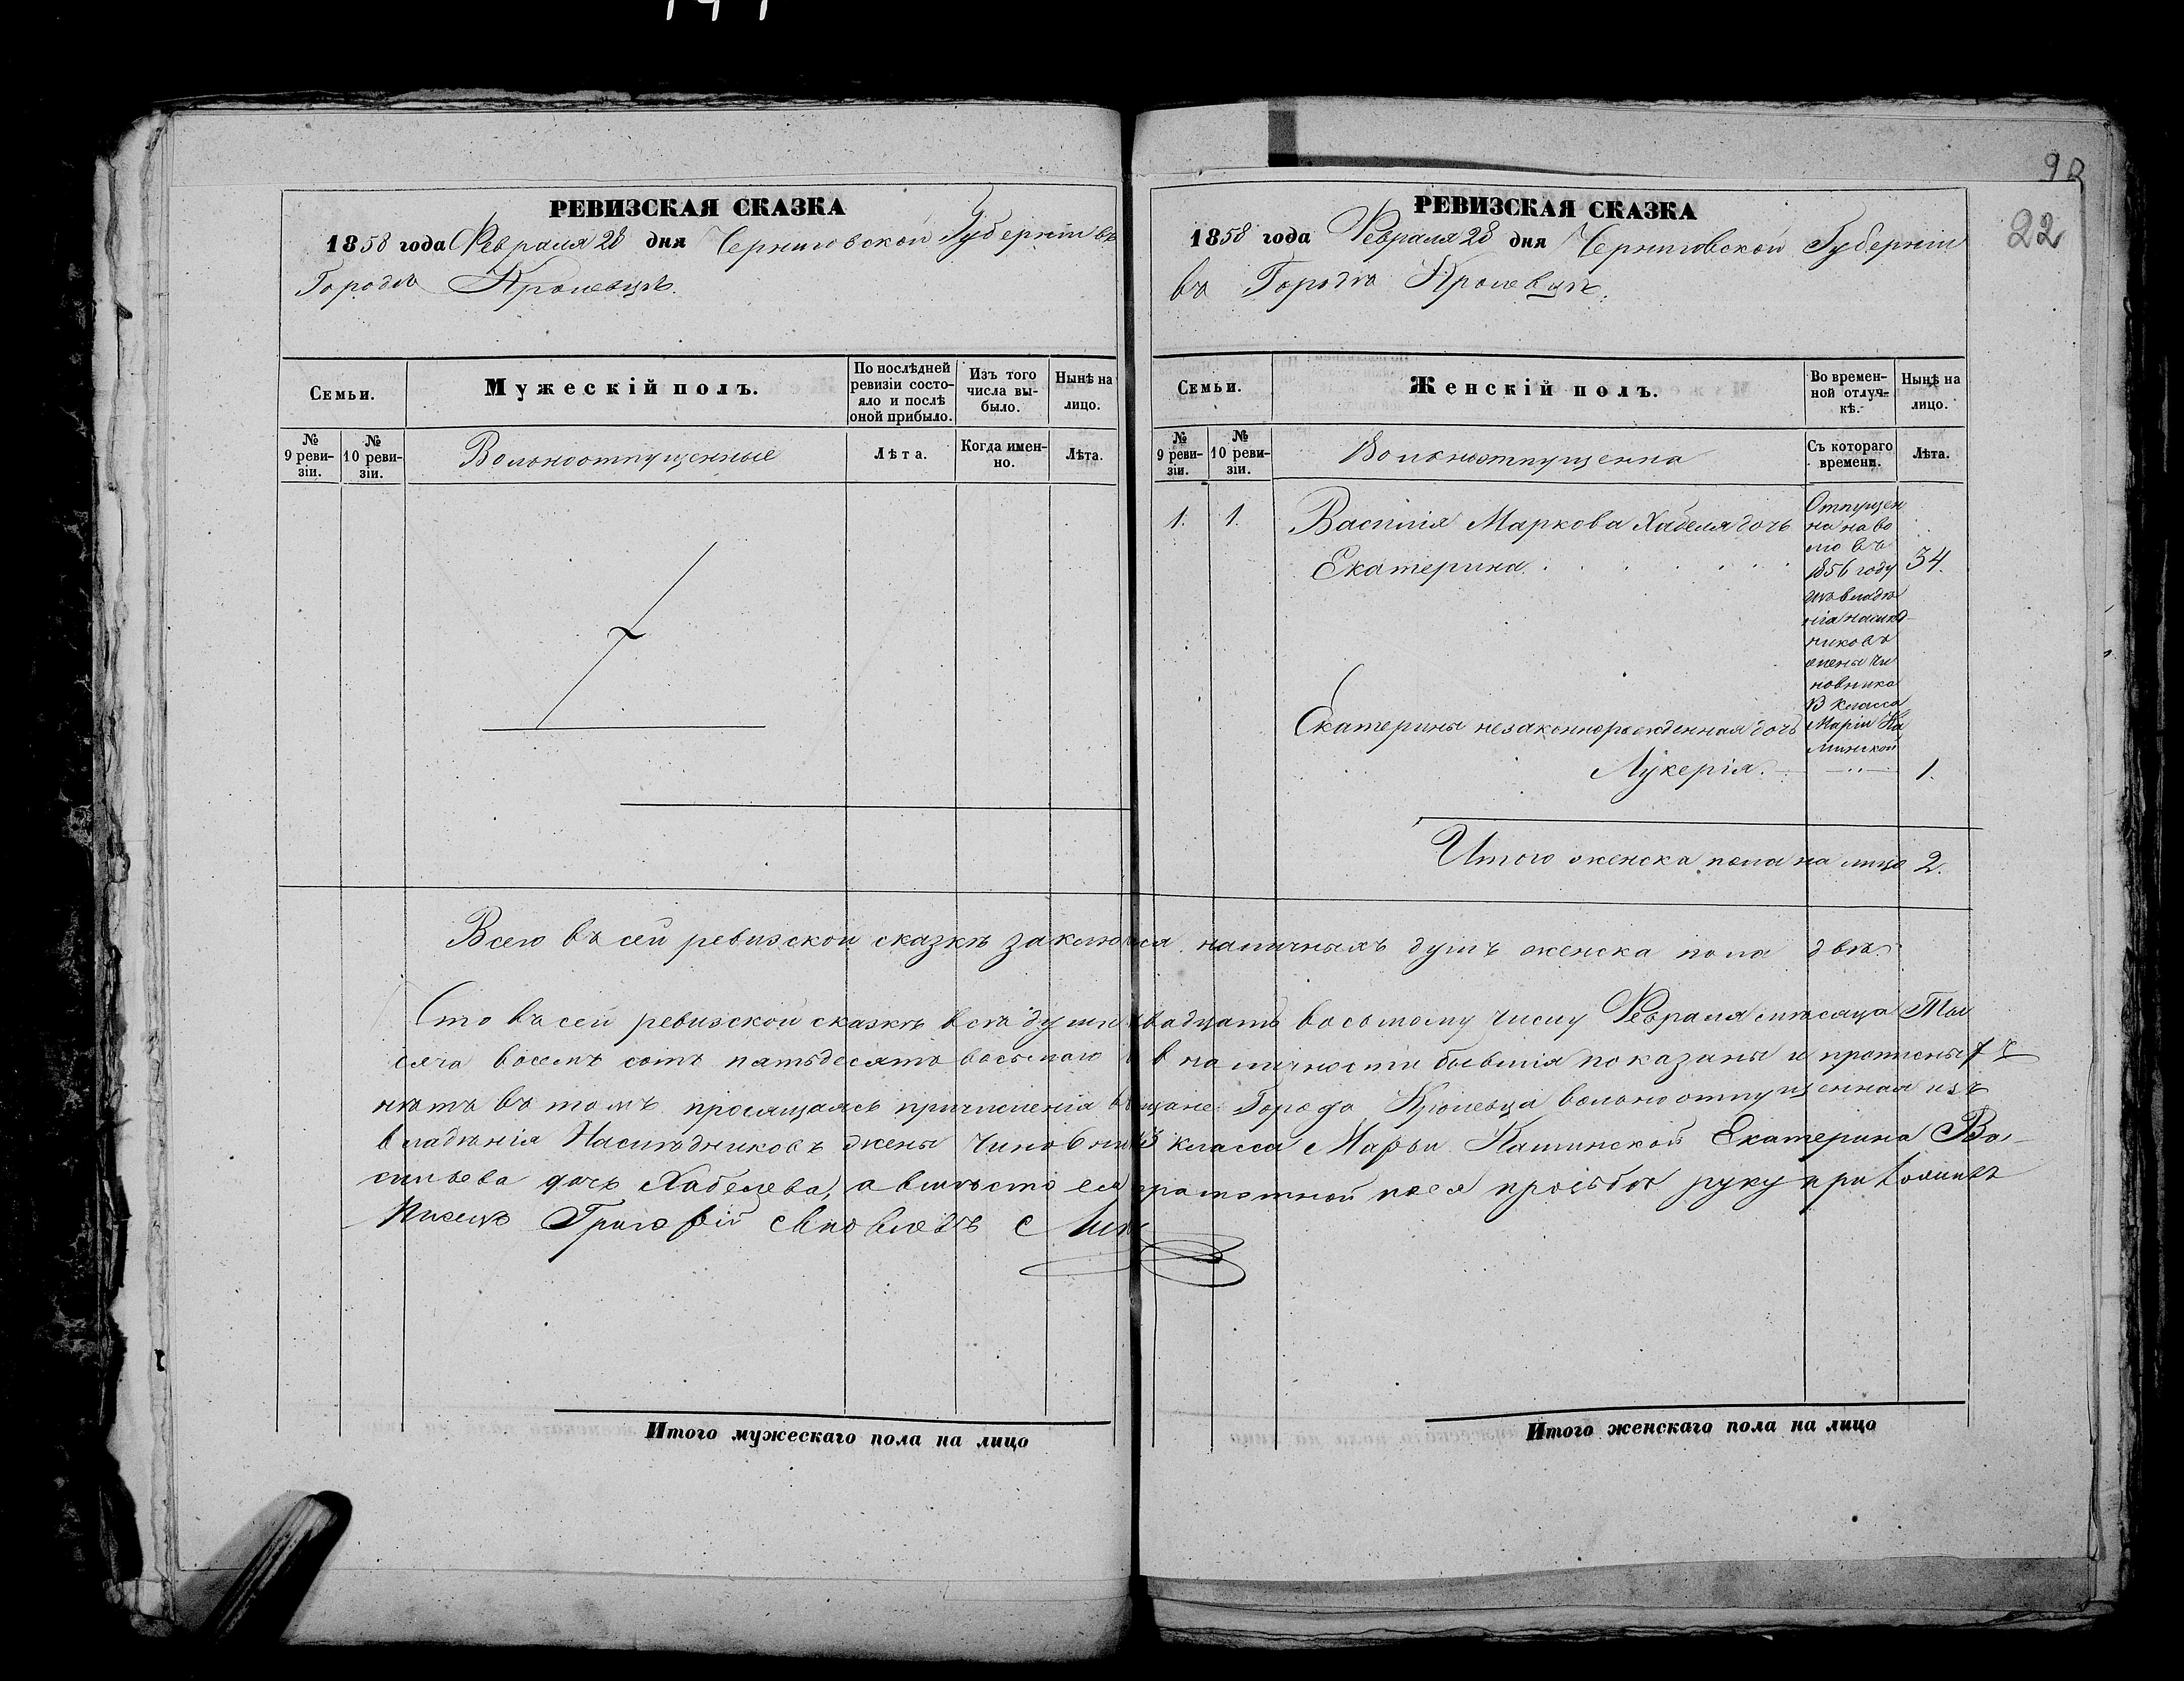 РЕВИЗСКАЯ СКАЗКА
1858 года Февраля 28 дня Черниговской Губерніи въ
Городѣ Кролевцѣ.
Семьи.
Мужескій полъ.
По послѣдней ревизіи состо-
яло и послѣ оной прибыло.
Изъ того числа вы-
было.
Нынѣ на лицо.
№ 9 реви-
зіи.
№ 10 реви-
зіи.
Вольноотпущенные
Лѣта.
Когда имен-
но.
Лѣта.
Итого мужескаго пола на лицо
92
22
РЕВИЗСКАЯ СКАЗКА
1858 года Февраля 28 дня Черниговской Губерніи
въ Городѣ Кролевцѣ.
Семьи.
Женскій полъ.
Во времен-
ной отлуч-
кѣ.
Нынѣ на лицо.
№ 9 реви-
зіи.
№ 10 реви-
зіи.
Вольноотпущенна
Съ котораго времени.
Лѣта.
1. 1. Василія Маркова Хабеля дочь
Екатерина 34.
Отпущен
на на во
лю въ
1856 году
изъ владѣ
нія наслѣд-
никовъ
жены чи
новника
13 класса
Маріи Ка
минской
Екатерины незаконнорожденная дочь
Лукерія. 1.
Итого женска пола на лицо 2.
Всего въ сей ревизской сказкѣ наличныхъ душъ женска пола двѣ.
Что въ сей ревизской сказкѣ всѣ души восьмому числу Февраля мѣсяца Ты
сяча восемъ сотъ пятьдесятъ восьмаго въ наличности бывшія показаны и
нѣтъ въ томъ просящаяся причисленія Города Кролевца вольноотпущенная изъ
владѣнія Наслѣдниковъ жены класса Марьи Каминской Екатерина Ва-
сильева дочь Хабелева, а вмѣсто ея грамотной по ея прозьбѣ руку приложилъ
Григорій
Итого женскаго пола на лицо